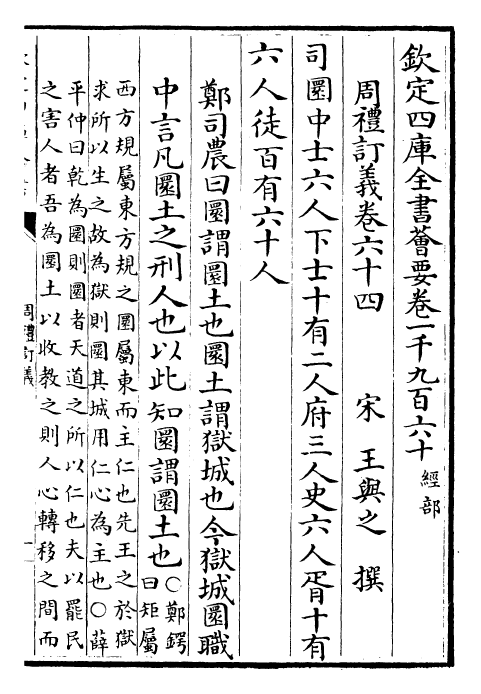 欽定四庫全書薈要卷一千九百六十 經部
周禮訂義卷六十四 宋 王與之 撰
司圜中士六人下士十有二人府三人史六人胥十有
六人徒百有六十人
鄭司農曰圜謂圜土也圜土謂獄城也今獄城圜職
中言凡圜土之刑人也以此知圜謂圜土也○鄭鍔
曰矩屬
西方規屬東方規之圜屬東而主仁也先王之於獄
求所以生之故為獄則圜其城用仁心為主也○薛
平仲曰乾為圜則圜者天道之所以仁也夫以罷民
之害人者吾為圜土以收教之則人心轉移之間而
周禮訂義